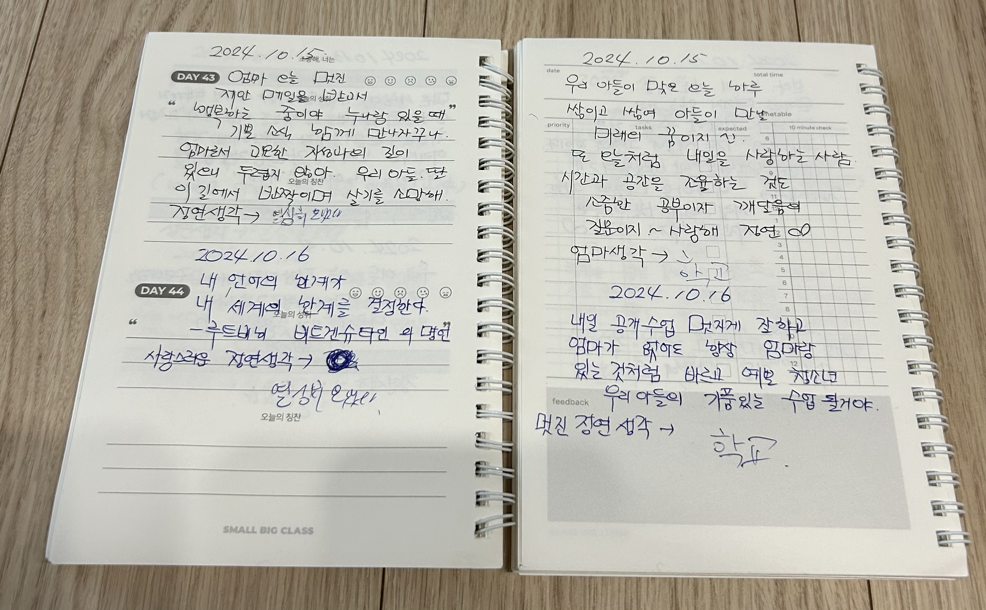 2024.10.15
DAY 43 엄마 오늘 멋진
제안 메일을 받고서
"협력하는 중이야 누나랑 있을 때"
기쁜 소식 함께 만나자꾸나.
엄마로서 고요한 지성과의 길이
있으니 두렵지 않아. 우리 아들. 딸
오늘의 칭찬
이 길에서 반짝이며 살기를 소망해.
정연생각→ 열심히 오셔요
2024.10.16
내 언어의 한계가
DAY 44
내 세계의 한계를 결정한다.
"
-루트비히 비트겐슈타인의 명언"
사랑스러운 정연생각→
열심히 오셔요.
오늘의 칭찬
SMALL BIG CLASS
2024.10.15
date
total time
우리 아들이 맞은 오늘 하루
쌓이고 쌓여 아들이 만날
timetable
priority tasks expected 10 minute check
미래의 꿈이지 싶.
또 오늘처럼 내일을 사랑하는 사람.
시간과 공간을 조율하는 것도
소중한 공부이자 깨달음의
질문이지~ 사랑해 정연 ∞
엄마생각→
학교
2024.10.16
내일 공개수업 멋지게 잘하고
엄마가 없어도 항상 엄마랑
있는 것처럼 바르고 예쁜 청소년
feedback
우리 아들의 기품있는 수업 될거야.
멋진 정연 생각→
학교.